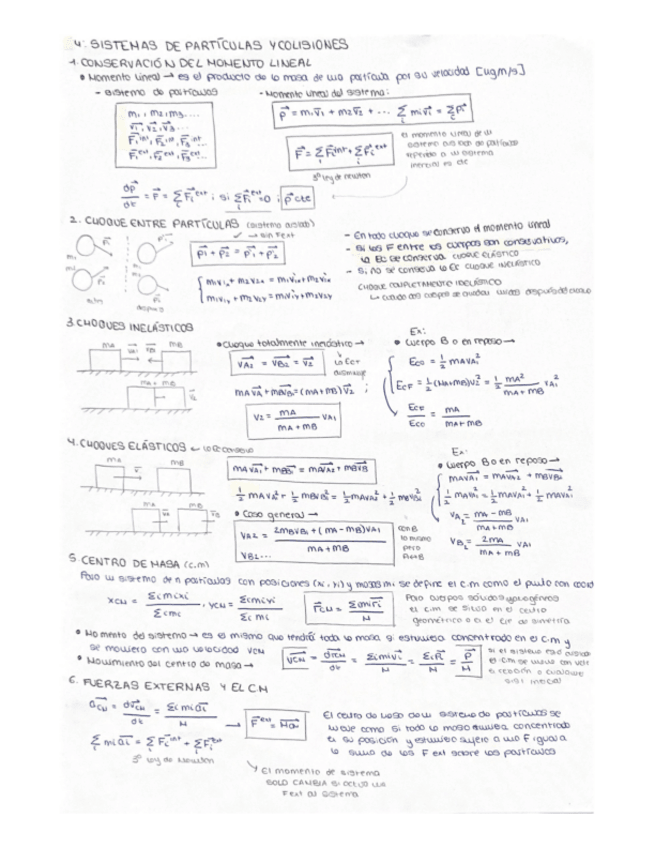 4. SISTEMAS DE PARTÍCULAS Y COLISIONES
1. CONSERVACIÓN DEL MOMENTO LINEAL
• Momento Lineal → es el producto de la masa de una partícula por su velocidad [kgm/s]
- Sistema de partículas
- Momento lineal del sistema:
m₁, m₂, m₃...
v₁, v₂, v₃...
F₁ⁱⁿᵗ, F₂ⁱⁿᵗ, F₃ⁱⁿᵗ...
F₁ᵉˣᵗ, F₂ᵉˣᵗ, F₃ᵉˣᵗ...
p = m₁v₁ + m₂v₂ + ... Σ mivi = Σ pi
F = Σ Fiⁱⁿᵗ + Σ Fiᵉˣᵗ
3ª ley de newton
el momento lineal de un
sistema aislado de partículas
respecto a un sistema
inercial es cte
dp/dt = F = Σ Fiᵉˣᵗ ; si Σ Fiᵉˣᵗ = 0 ; p cte
2. CHOQUE ENTRE PARTÍCULAS (sistema aislado)
→ sin Fext
m₁ p₁
m₂ p₂
antes
después
p₁ + p₂ = p'₁ + p'₂
m₁v₁ₓ + m₂v₂ₓ = m₁v'₁ₓ + m₂v'₂ₓ
m₁v₁y + m₂v₂y = m₁v'₁y + m₂v'₂y
- En todo choque se conserva el momento lineal
- Si las F entre los cuerpos son conservativas,
la Ec se conserva CHOQUE ELÁSTICO
- Si no se conserva la Ec CHOQUE INELÁSTICO
CHOQUE COMPLETAMENTE INELÁSTICO
↳ cuando dos cuerpos se quedan unidos después del choque
3. CHOQUES INELÁSTICOS
mA vA vB mB
mA+mB v₂
• Choque totalmente inelástico →
vA₂ = vB₂ = v₂
↳ la Ec
disminuye
mAvA₁ + mBvB₁ = (mA + mB)v₂ ;
v₂ = mA/(mA + mB) vA₁
Ex:
• Cuerpo B en reposo →
Eco = 1/2 mAvA₁²
EcF = 1/2 (mA+mB)v₂² = 1/2 mA²/(mA + mB) vA₁²
EcF/Eco = mA/(mA + mB)
4. CHOQUES ELÁSTICOS ← la Ec conserva
mA v mB
mA vA mB vB
mAvA₁ + mBvB₁ = mAvA₂ + mBvB₂
1/2 mAvA₁² + 1/2 mBvB₁² = 1/2 mAvA₂² + 1/2 mBvB₂²
• Caso general →
vA₂ = (2mBvB₁ + (mA - mB)vA₁)/(mA + mB)
vB₂...
con B
lo mismo
pero
A↔B
Ex:
• Cuerpo B en reposo →
mAvA₁ = mAvA₂ + mBvB₂
1/2 mAvA₁² = 1/2 mAvA₂² + 1/2 mBvB₂²
vA₂ = (mA - mB)/(mA + mB) vA₁
vB₂ = 2mA/(mA + mB) vA₁
5. CENTRO DE MASA (c.m)
Para un sistema de n partículas con posiciones (xi, yi) y masas mi se define el c.m como el punto con coord
xCM = Σi mi xi/Σi mi , yCM = Σi mi yi/Σi mi
rCM = Σi mi ri/M
Para cuerpos sólidos y homogéneos
el c.m se sitúa en el centro
geométrico o en el eje de simetría
• Momento del sistema → es el mismo que tendrá toda la masa si estuviese concentrada en el c.m y
se moviera con una velocidad vCM
• Movimiento del centro de masa →
vCM = drCM/dt = Σi mi vi/M = Σi Pi/M = P/M
si el sistema está aislado
el C.M se mueve con v cte
6. FUERZAS EXTERNAS Y EL CM
aCM = dvCM/dt = Σi mi ai/M → Fᵉˣᵗ = Ma
Σ mi ai = Σ Fiⁱⁿᵗ + Σ Fiᵉˣᵗ
3ª ley de Newton
El centro de masa de un sistema de partículas se
mueve como si toda la masa estuviera concentrada
en su posición y estuviese sujeto a una F igual a
la suma de las F ext sobre las partículas
↳ El momento de sistema
SOLO CAMBIA si actúa una
Fext al sistema